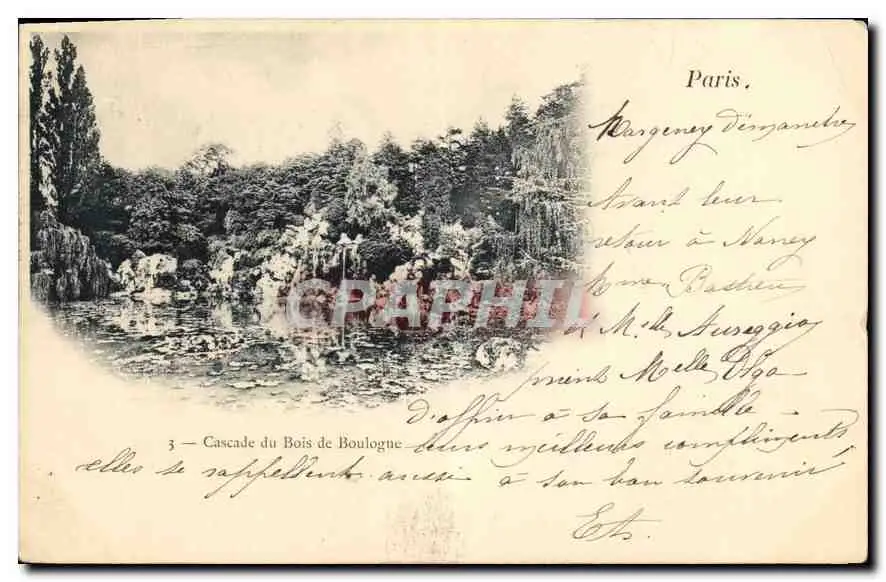 Paris.
dimanche
Avant leur
retour à Nancy
Mme Bastien
& Mlle Aureggio
prient Melle Olga
d'offrir à sa famille
3 — Cascade du Bois de Boulogne
leurs meilleurs compliments
elles se rappellent aussi à son bon souvenir
CPAPHIL